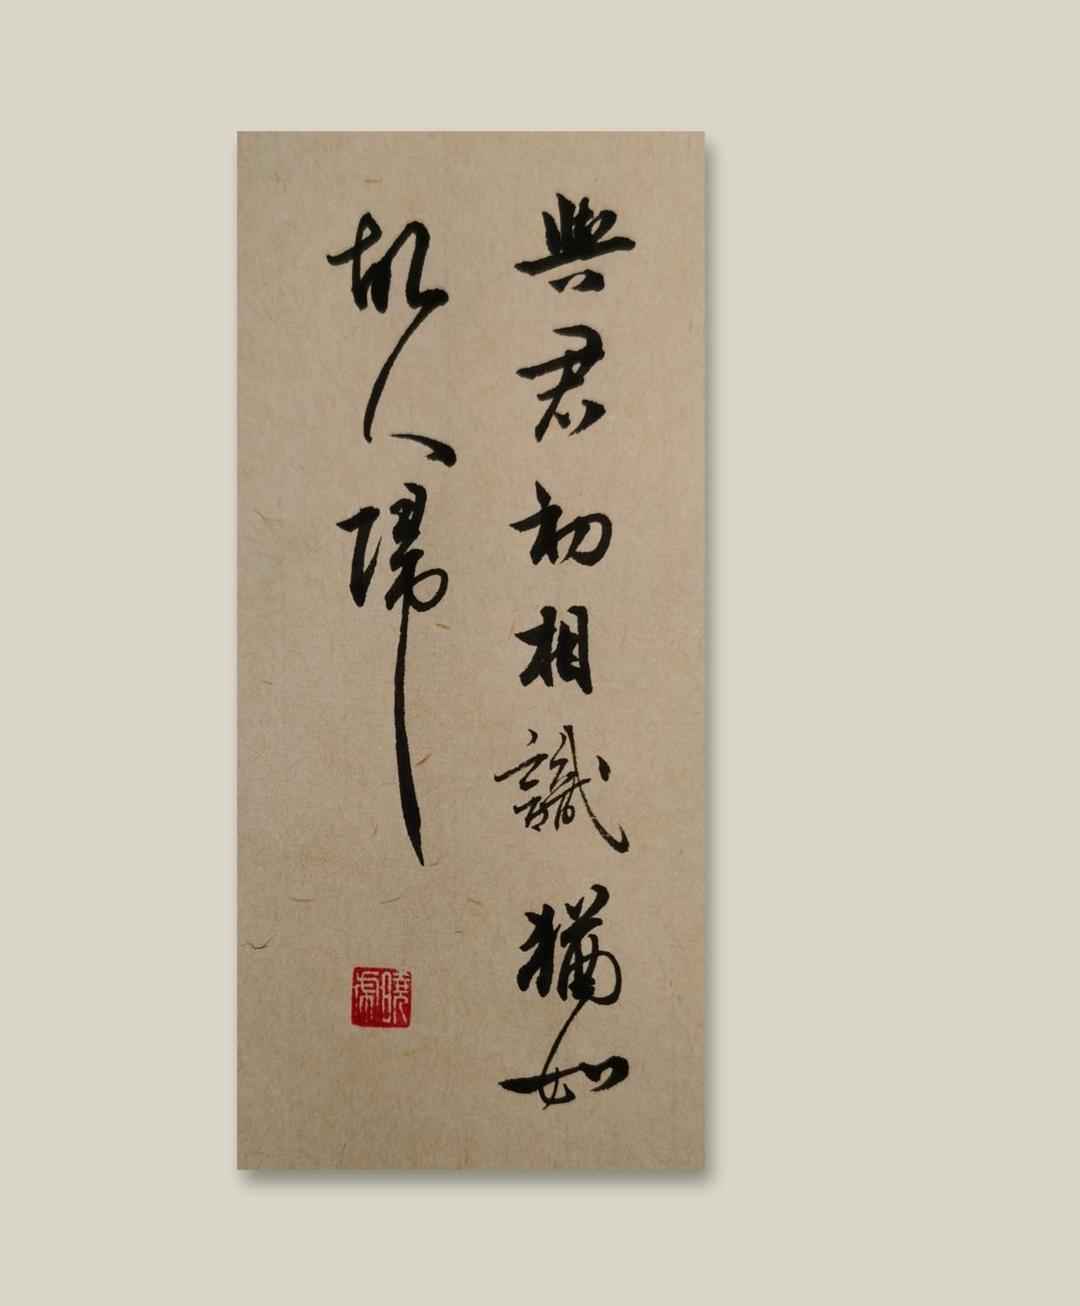 與君初相識猶如
故人歸